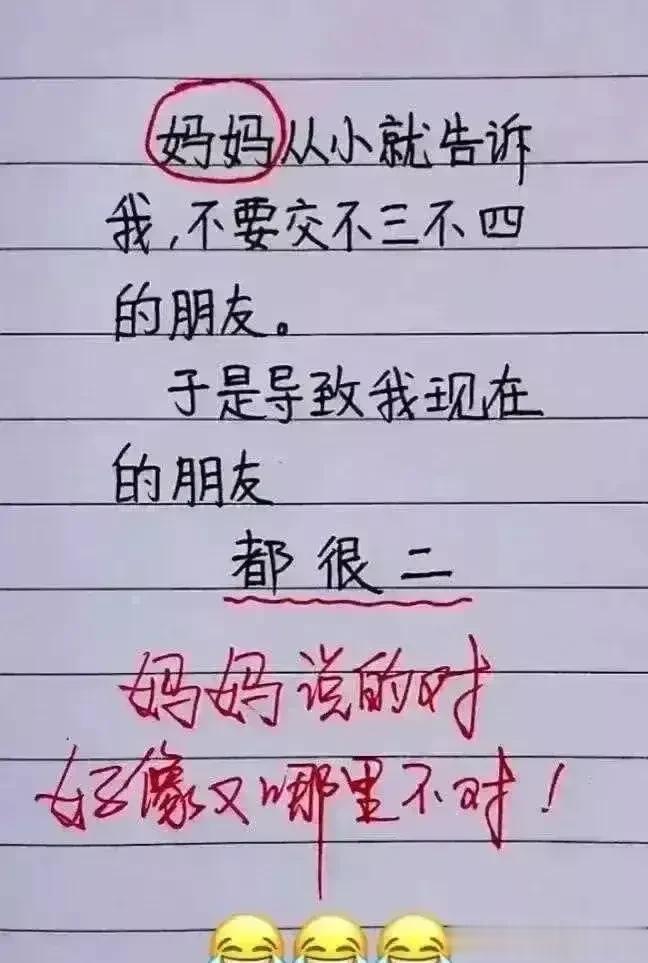 妈妈从小就告诉
我,不要交不三不四
的朋友。
于是导致我现在
的朋友
都很二
妈妈说的对
好像又哪里不对!